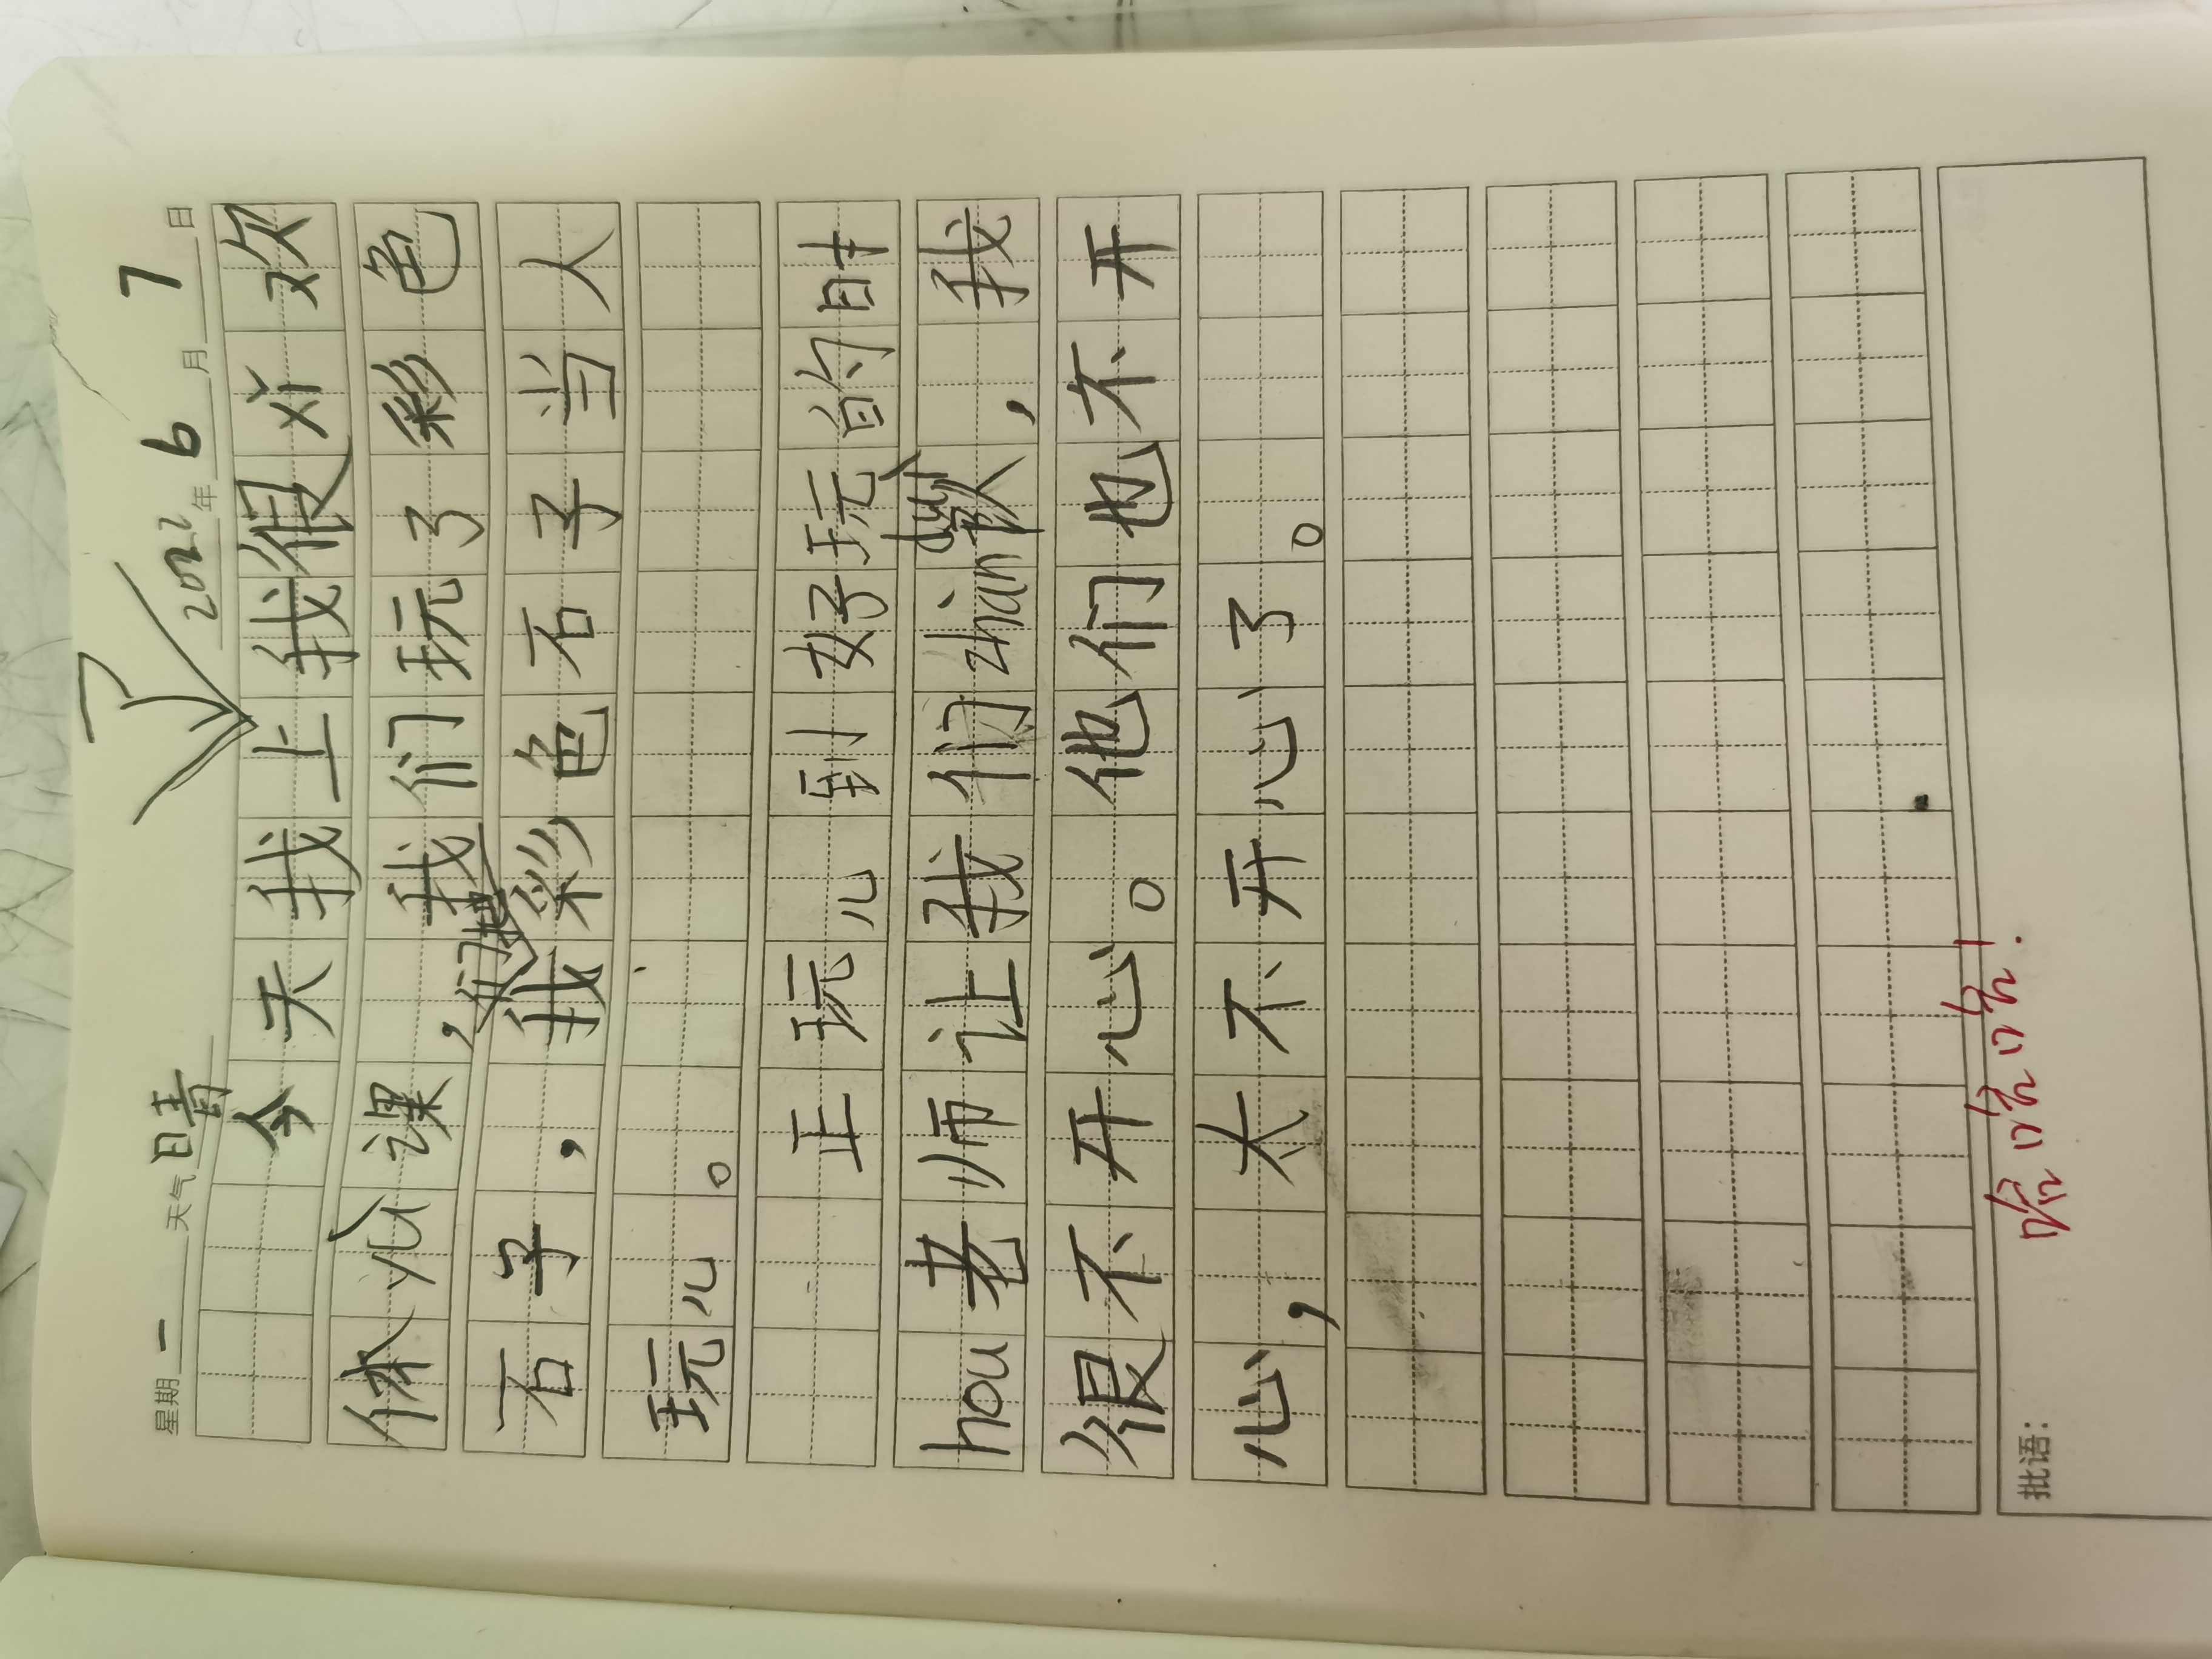 星期一 天气晴 2022年6月7日
了
今天我上我很xǐ欢
体yù课，我们玩了彩色
们把
石子，我彩色石子当人
玩儿。
正玩儿到好玩的时
duì
hou老师让我们zhàn，我
很不开心。他们也不开
心，太不开心了。
批语：哈哈哈！